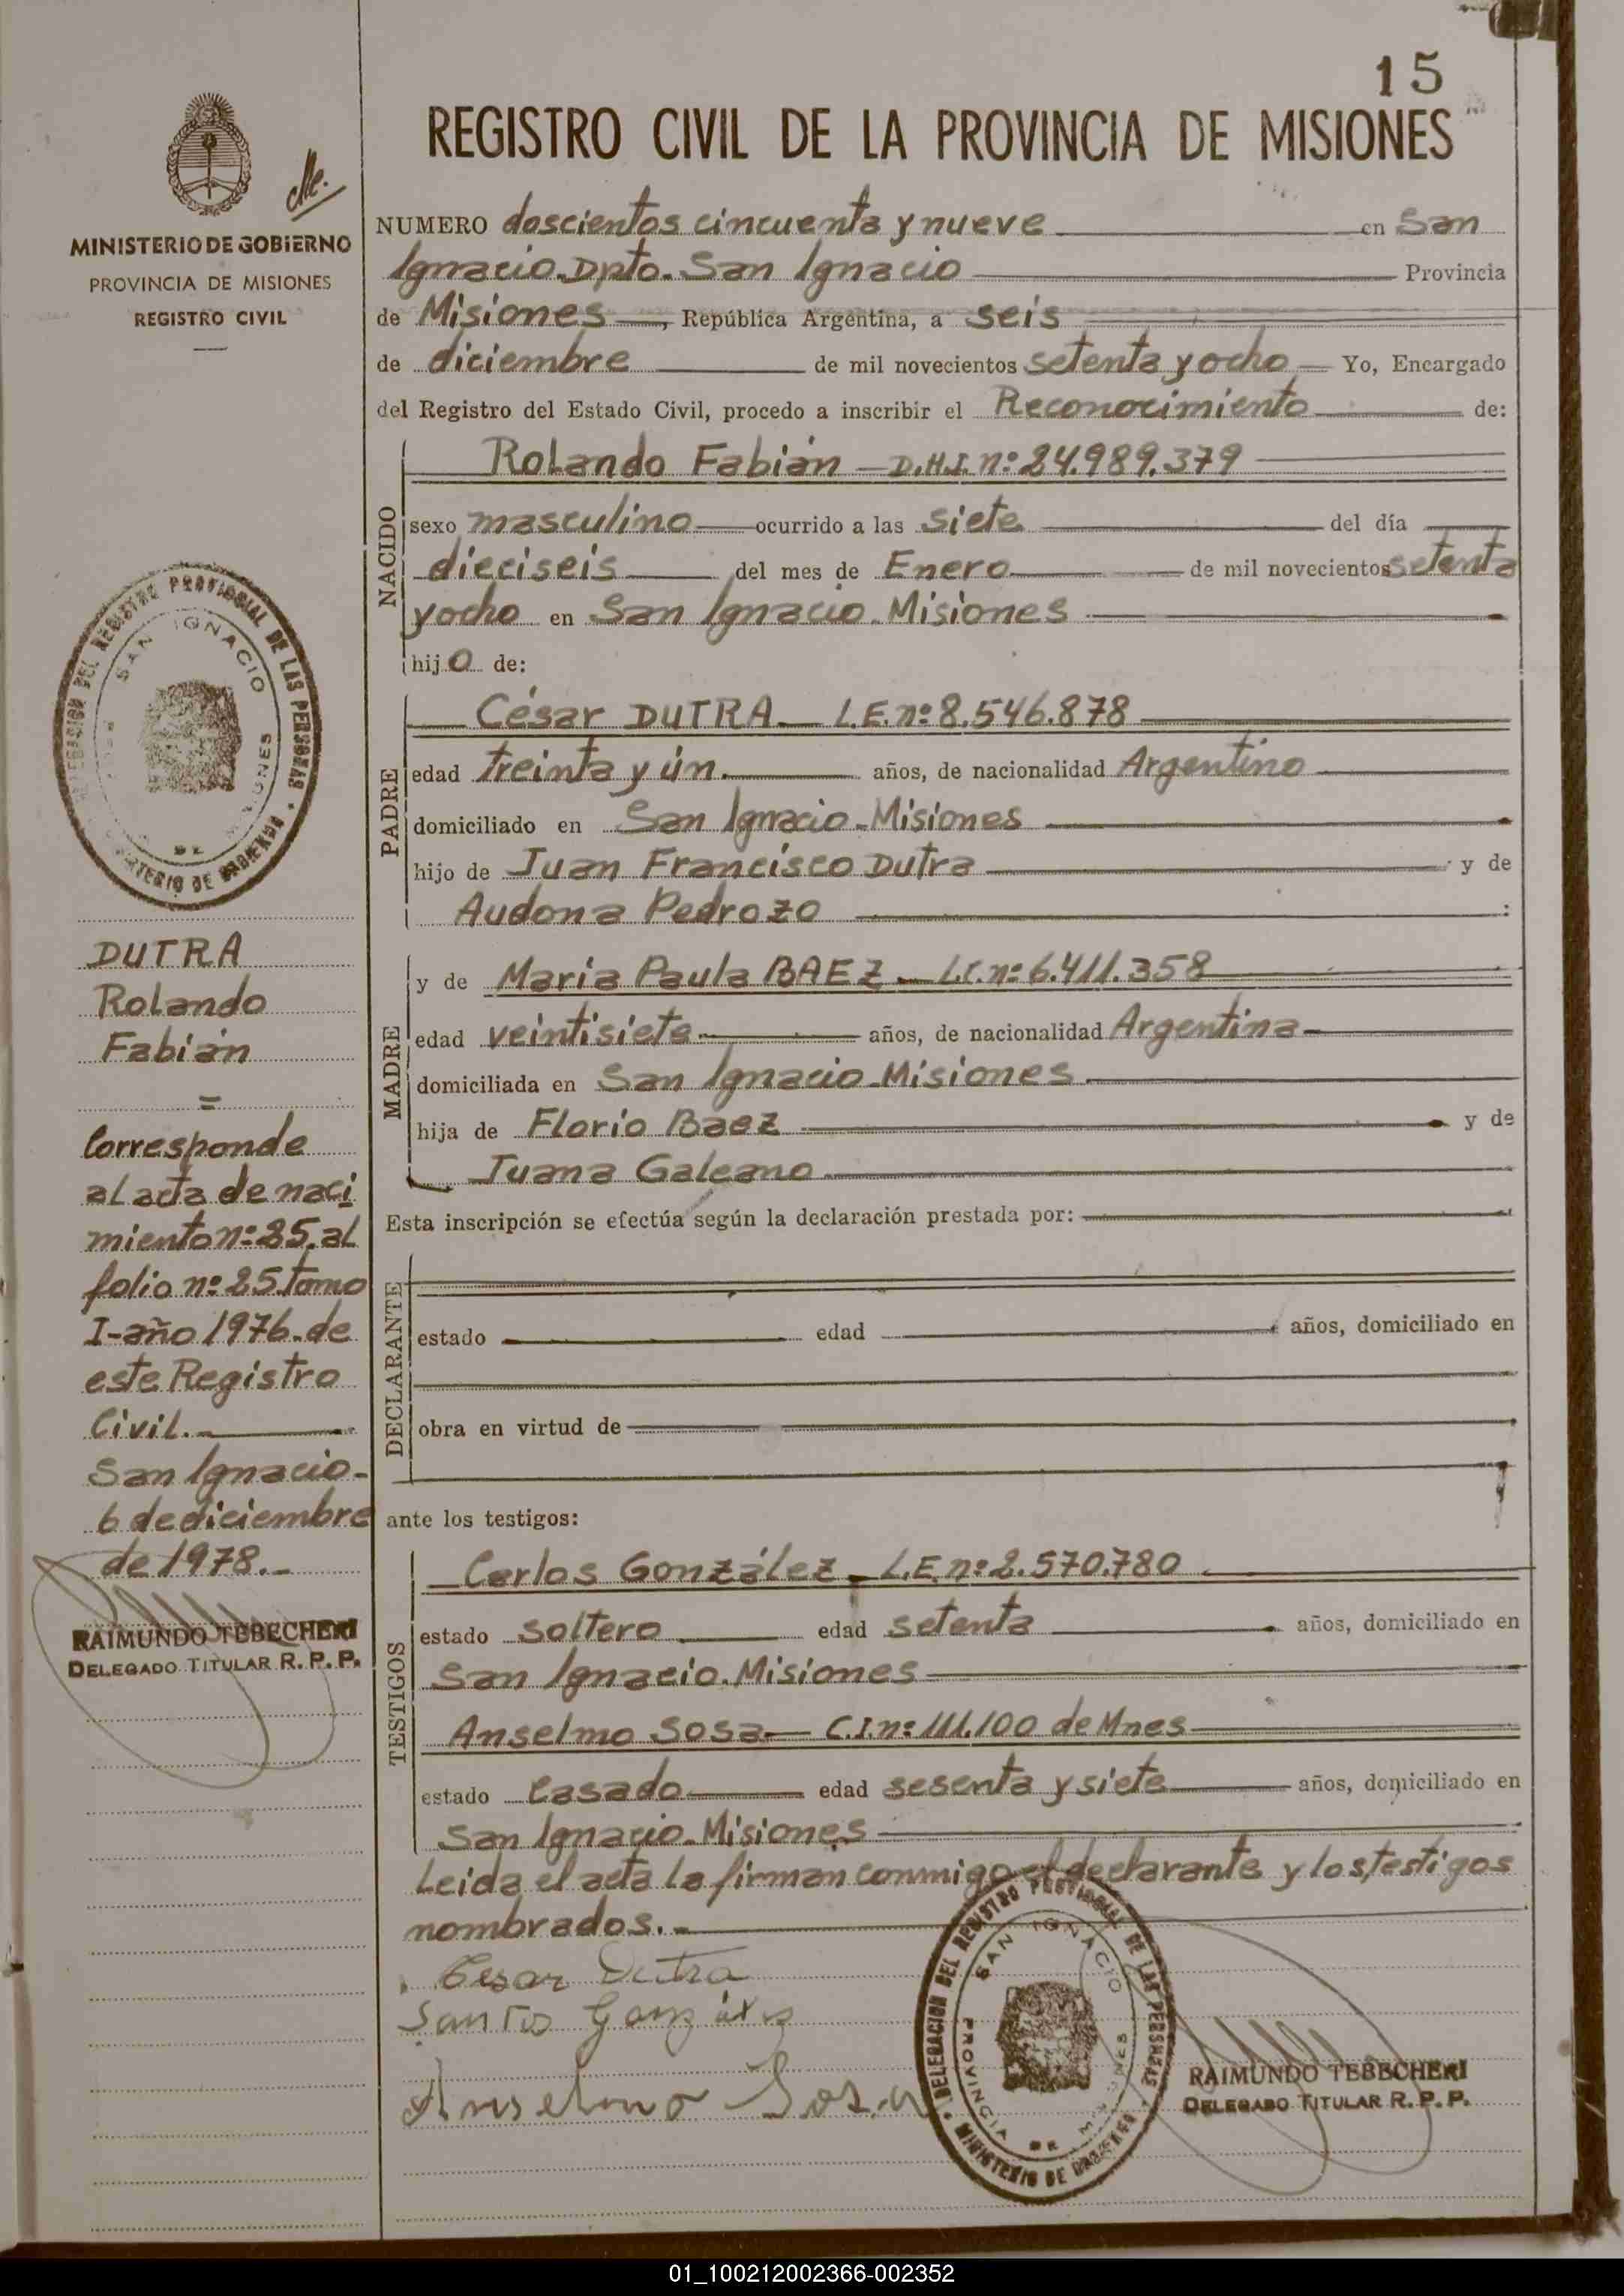 15
REGISTRO CIVIL DE LA PROVINCIA DE MISIONES
MINISTERIO DE GOBIERNO
PROVINCIA DE MISIONES
REGISTRO CIVIL
NUMERO doscientos cincuenta y nueve en San
Ignacio. Dpto. San Ignacio Provincia
de Misiones, República Argentina, a seis
de diciembre de mil novecientos setenta y ocho Yo, Encargado
del Registro del Estado Civil, procedo a inscribir el Reconocimiento de:
NACIDO
Rolando Fabián - D.N.I. nº 24.989.379
sexo masculino ocurrido a las siete del día
dieciseis del mes de Enero de mil novecientos setenta
y ocho en San Ignacio. Misiones
hijo de:
PADRE
César DUTRA - L.E. nº 8.546.878
edad treinta y ún. años, de nacionalidad Argentino
domiciliado en San Ignacio - Misiones
hijo de Juan Francisco Dutra y de
Audona Pedrozo :
MADRE
y de Maria Paula BAEZ - L.C. nº 6.411.358
edad veintisiete. años, de nacionalidad Argentina
domiciliada en San Ignacio - Misiones
hija de Florio Baez y de
Juana Galeano
Esta inscripción se efectúa según la declaración prestada por:
DECLARANTE
estado edad años, domiciliado en
obra en virtud de
ante los testigos:
TESTIGOS
Carlos González - L.E. nº 2.570.780
estado soltero edad setenta años, domiciliado en
San Ignacio. Misiones
Anselmo Sosa - C.I. nº 111.100 de Mnes
estado Casado edad sesenta y siete años, domiciliado en
San Ignacio - Misiones
Leida el acta la firman conmigo el declarante y los testigos
nombrados.-
Cesar Dutra
Santos González
Anselmo Sosa
DELEGACION DEL REGISTRO PROVINCIAL DE LAS PERSONAS
SAN IGNACIO
PROVINCIA DE MISIONES
MINISTERIO DE GOBIERNO
RAIMUNDO TEBECHERI
DELEGADO TITULAR R. P. P.
DELEGACION DEL REGISTRO PROVINCIAL DE LAS PERSONAS
SAN IGNACIO
DUTRA
Rolando
Fabián
=
Corresponde
al acta de naci
miento nº 25. al
folio nº 25. Tomo
I - año 1976. de
este Registro
Civil. -
San Ignacio -
6 de diciembre
de 1978. -
RAIMUNDO TEBECHERI
DELEGADO TITULAR R. P. P.
01_100212002366-002352